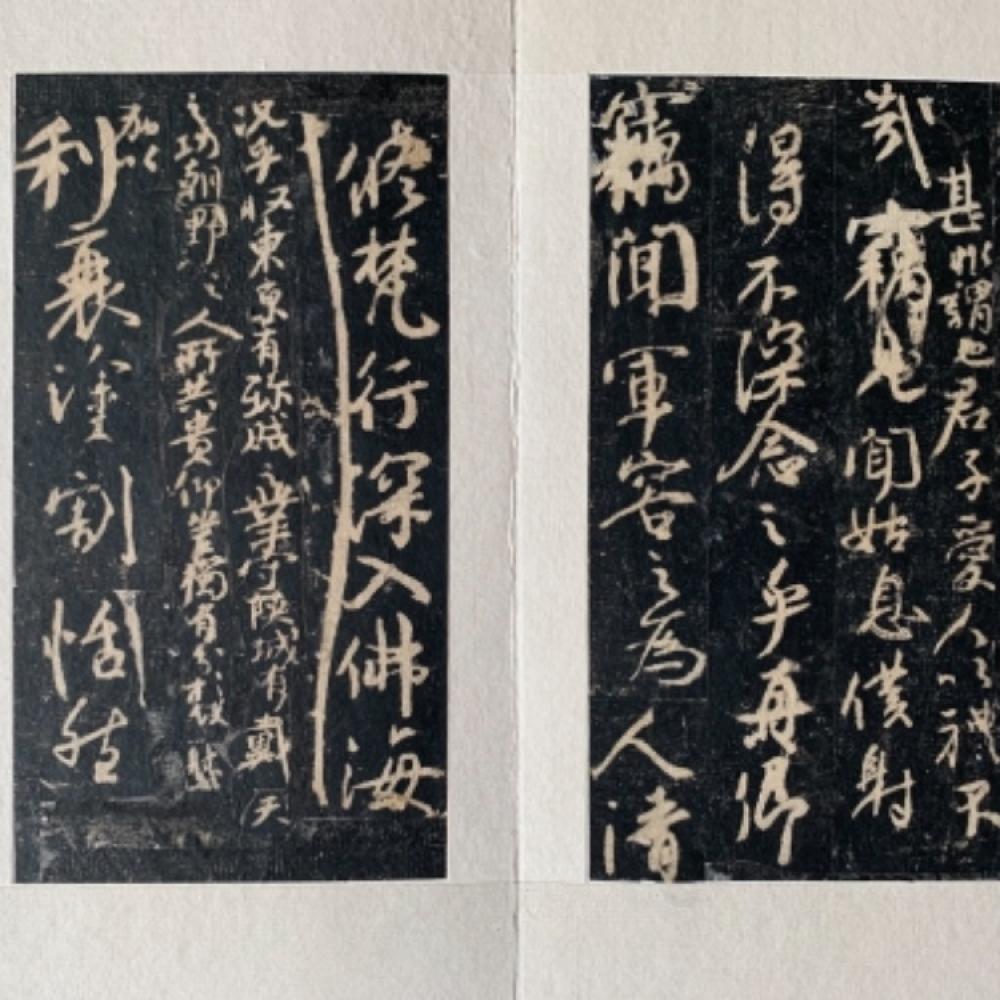 甚非謂也君子愛人以禮不
哉竊見聞姑息僕射
得不深念之乎真卿
竊聞軍容之為人清
修梵行深入佛海
況乎收東京有殄賊之業守陝城有戴天
之功朝野之人所共貴仰豈獨有分於僕
加以
利衰塗割恬然